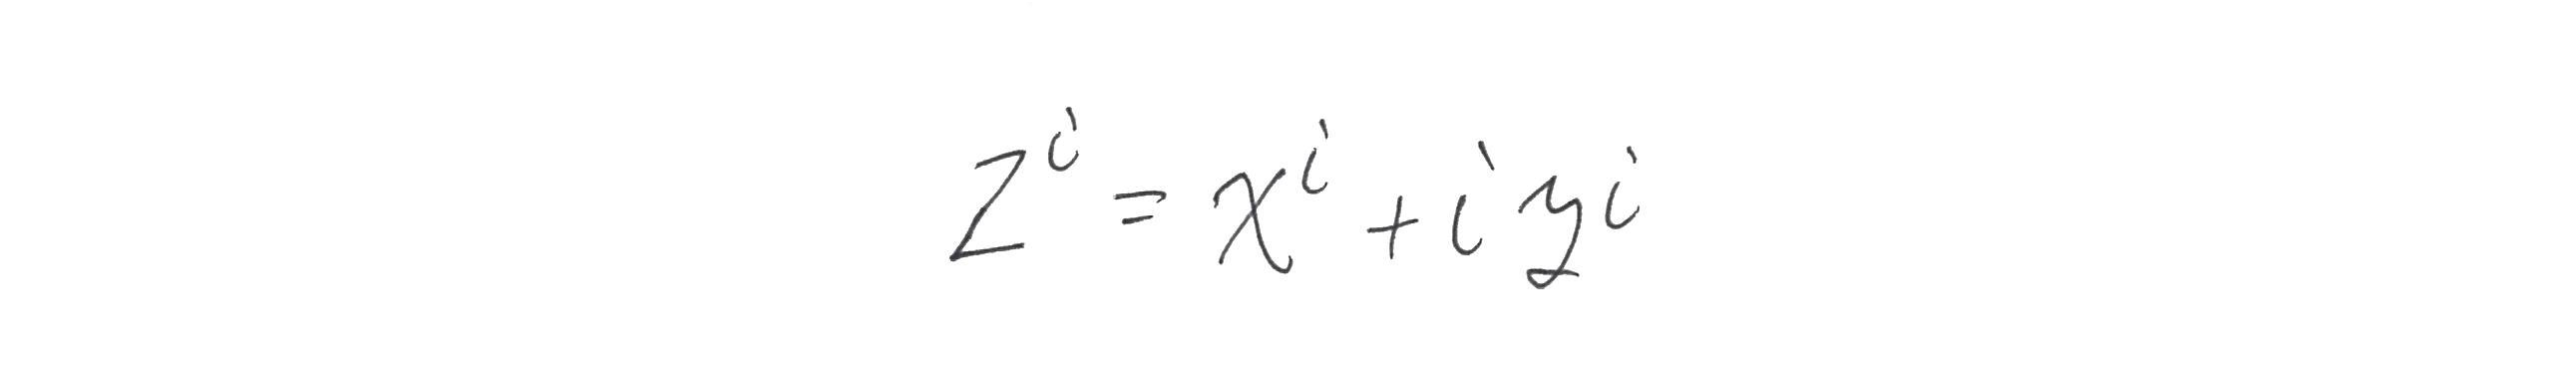 z^i = x^i + i y^i